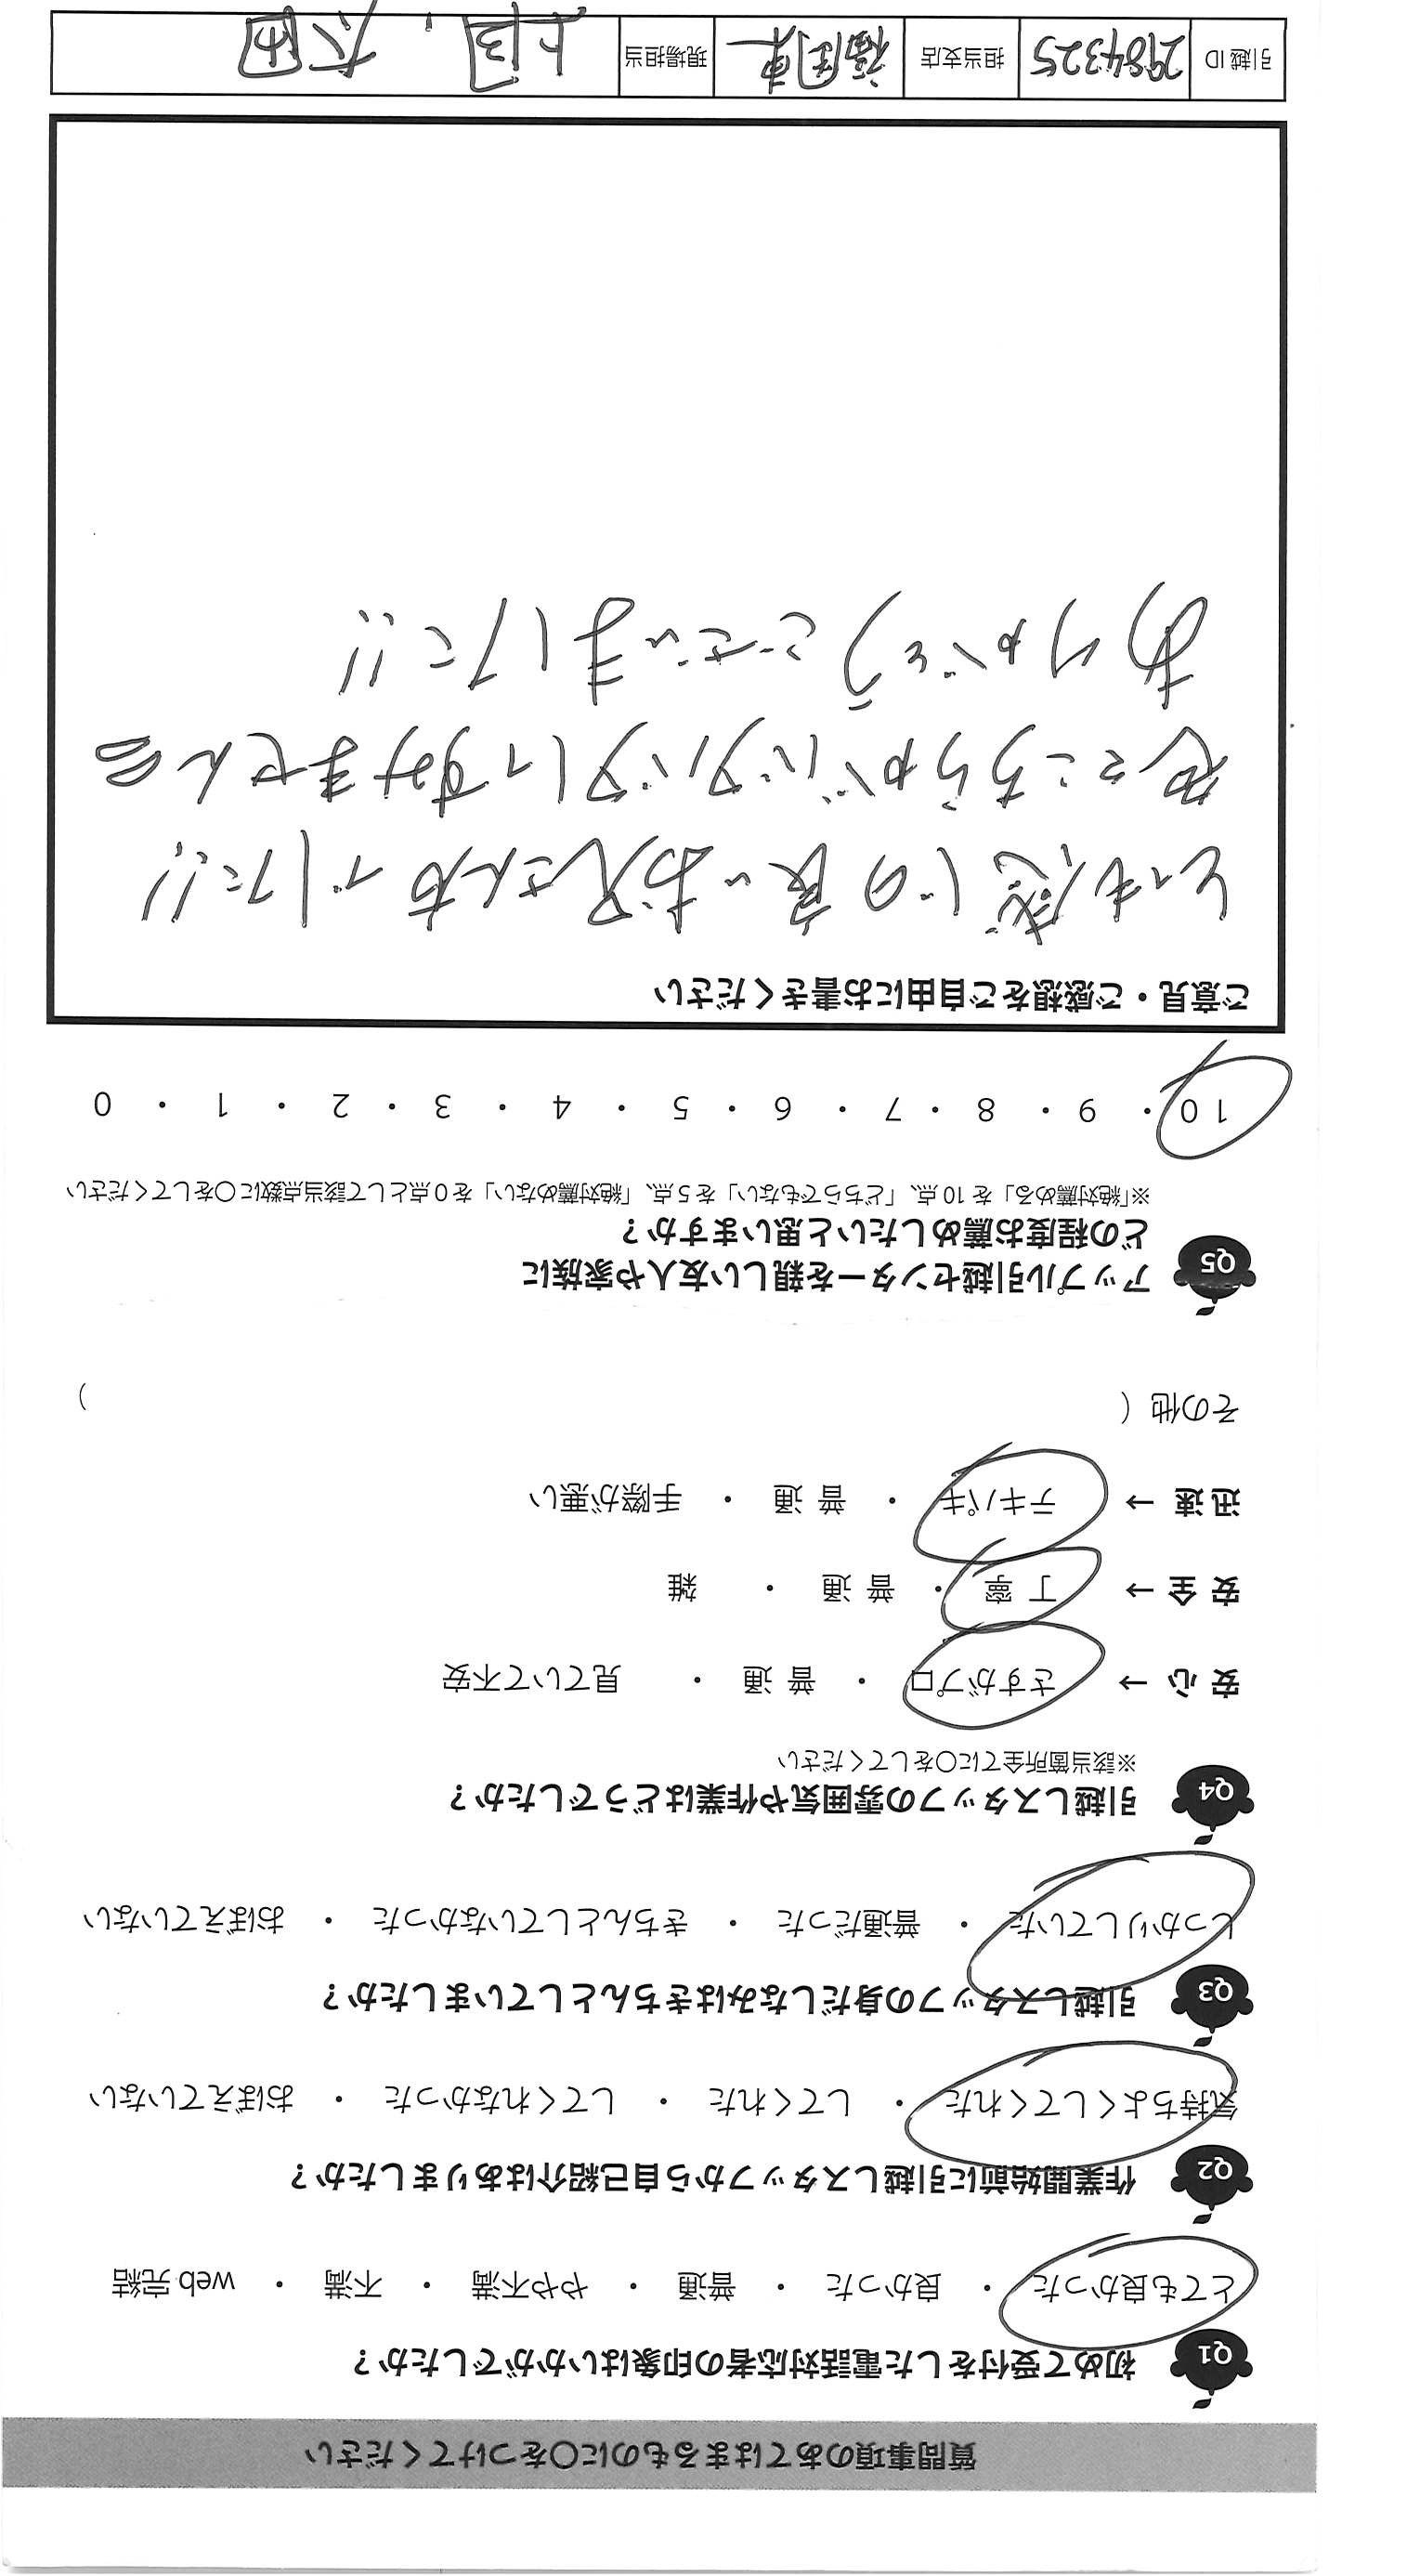 質問事項のあてはまるものに○をつけてください
Q1 初めて受付をした電話対応者の印象はいかがでしたか？
とても良かった ・ 良かった ・ 普通 ・ やや不満 ・ 不満 ・ web完結
Q2 作業開始前に引越しスタッフから自己紹介はありましたか？
気持ちよくしてくれた ・ してくれた ・ してくれなかった ・ おぼえていない
Q3 引越しスタッフの身だしなみはきちんとしていましたか？
しっかりしていた ・ 普通だった ・ きちんとしていなかった ・ おぼえていない
Q4 引越しスタッフの雰囲気や作業はどうでしたか？
※該当箇所全てに○をしてください
安心 → さすがプロ ・ 普通 ・ 見ていて不安
安全 → 丁寧 ・ 普通 ・ 雑
迅速 → テキパキ ・ 普通 ・ 手際が悪い
その他（ ）
Q5 アップル引越センターを親しい友人や家族に
どの程度お薦めしたいと思いますか？
※「絶対薦める」を10点、「どちらでもない」を5点、「絶対薦めない」を0点として該当点数に○をしてください
10 ・ 9 ・ 8 ・ 7 ・ 6 ・ 5 ・ 4 ・ 3 ・ 2 ・ 1 ・ 0
ご意見・ご感想をご自由にお書きください
とても感じの良いお兄さん方でした!!
こちらがバタバタしてすみません
ありがとうございました!!
引越ID 2984325 担当支店 福岡東 現場担当 上岡, 太田